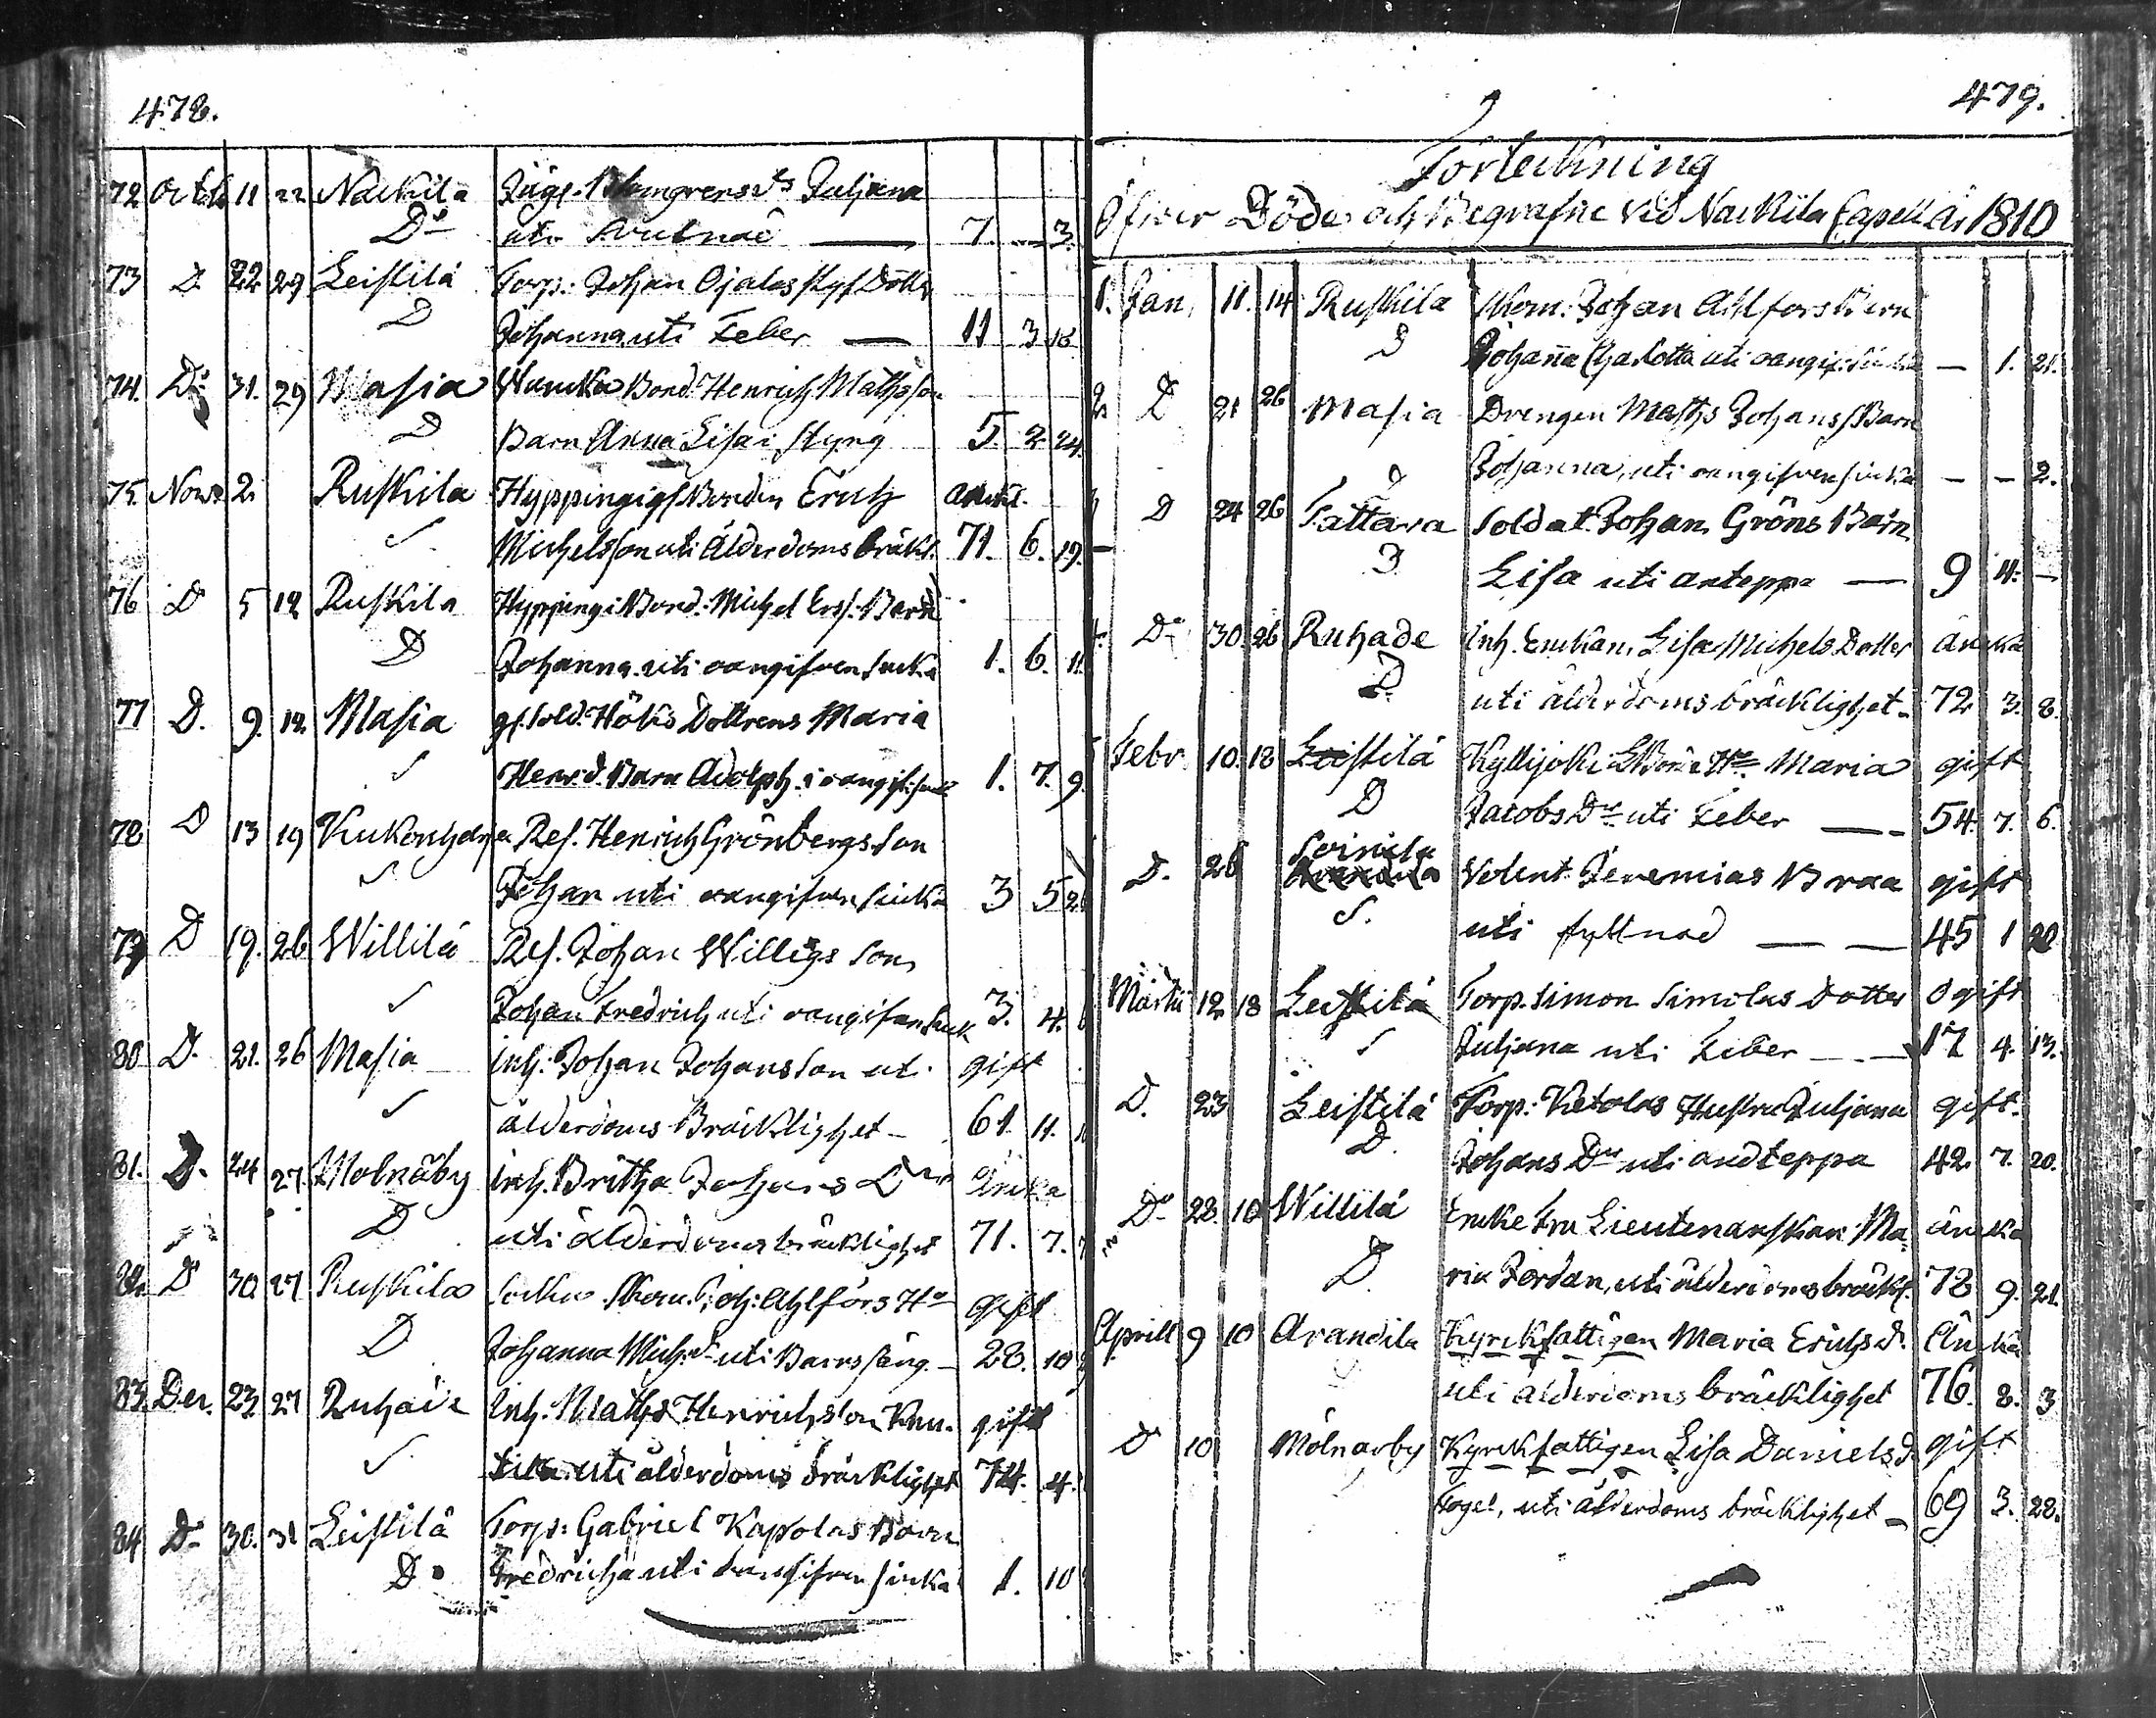 478.
72 Octb 11 22 Nackila Blomgrens Juliana
Do uti 7. — 3.
73 D 22 29 Leistilä Torp: Johan Ojalas Dotter
D Johanna uti Feber — 11 3 16
74. Do 31. 29 Masia Bond: Henrich Mathsson
D Barn Anna Lisa i styng 5. 2. 24.
75. Novr 2. Ruskila Hyppingi Bonden Erich
Michelsson uti Ålderdoms bräckl. 71. 6. 19.
76 D 5 12 Ruskila Hyppingi Bond: Michel Ers: Barn
D Johanna uti oangifven siuka 1. 6. 11.
77 D. 9. 12. Masia gl. Sold: Höks Dottrens Maria
Henr. d. Barn Adolph. i oangif: 1. 7. 9.
78 D 13 19 Res. Henrich Grönbergs Son
Johan uti oangifven siuka 3 5
79 D 19. 26 Willilä Res. Johan Willigs Son
Johan Fredrich uti oangifven siuk 3. 4.
80 D. 21. 26 Masia Inh: Johan Johansson uti gift
ålderdoms Bräcklighet — 61. 11.
81. D. 24 27 Molnäby Inh. Britha Johans Dr änka
D uti ålderdoms bräcklighet 71. 7.
82. D 30 27 Ruskila Joh: Ahlfors Ho gift
D Johanna Mich: dr uti Barnsäng — 28. 10
83. Der. 23 27 Ruhade Inh. Maths Henrichsson gift
uti ålderdoms bräcklighet 74. 4.
84 Do 30. 31 Leistilä Torp: Gabriel Kapolas Barn
Do Fredricha uti oangifven siuka 1. 10
479.
Förteckning
Öfwer Döde och Begrafne vid Nackila Capell År 1810
1. Jan. 11. 14 Ruskila Johan Ahlfors Barn
D Johanna Charlotta uti oangif. siuka — 1. 21.
2. D 21 26 Masia Drengen Maths Johans: Barn
D Johanna, uti oangifven siuka — — 2.
D 24 26 Tattara Soldat. Johan Gröns Barn
D Lisa uti anteppa — 9 11. —
4. Do 30. 26 Ruhade Inh. Enckan Lisa Michels Dotter äncka
D uti ålderdoms bräcklighet — 72. 3. 8.
Febr. 10. 18 Leistilä Kyllijoki Ho Maria gift
D Jacobs Dr uti Feber — 54. 7. 6.
D. 26 Soinila Volent. Jeremias Braa gift
uti — — 45 1 20
Martii 12 18 Leistilä Torp. Simon Simolas Dotter Ogift
Juliana uti Feber — 17 4. 13.
D. 23 Leistilä Torp: Ketolas Hustru Juliana gift.
D. Johans Dr uti andteppa 42. 7. 20.
Do 28. 10 Willilä Encke Fru Lieutenanskan Ma: äncka
D. ria Jordan, uti ålderdoms bräckl. 78 9. 21.
Aprill 9 10 Arandila Kyrckfattigen Maria Erichs d. Äncka
uti ålderdoms bräcklighet 76. 8. 3
D 10 Molnarby Kyrckfattigen Lisa Daniels d. gift
uti ålderdoms bräcklighet — 69 3. 28.